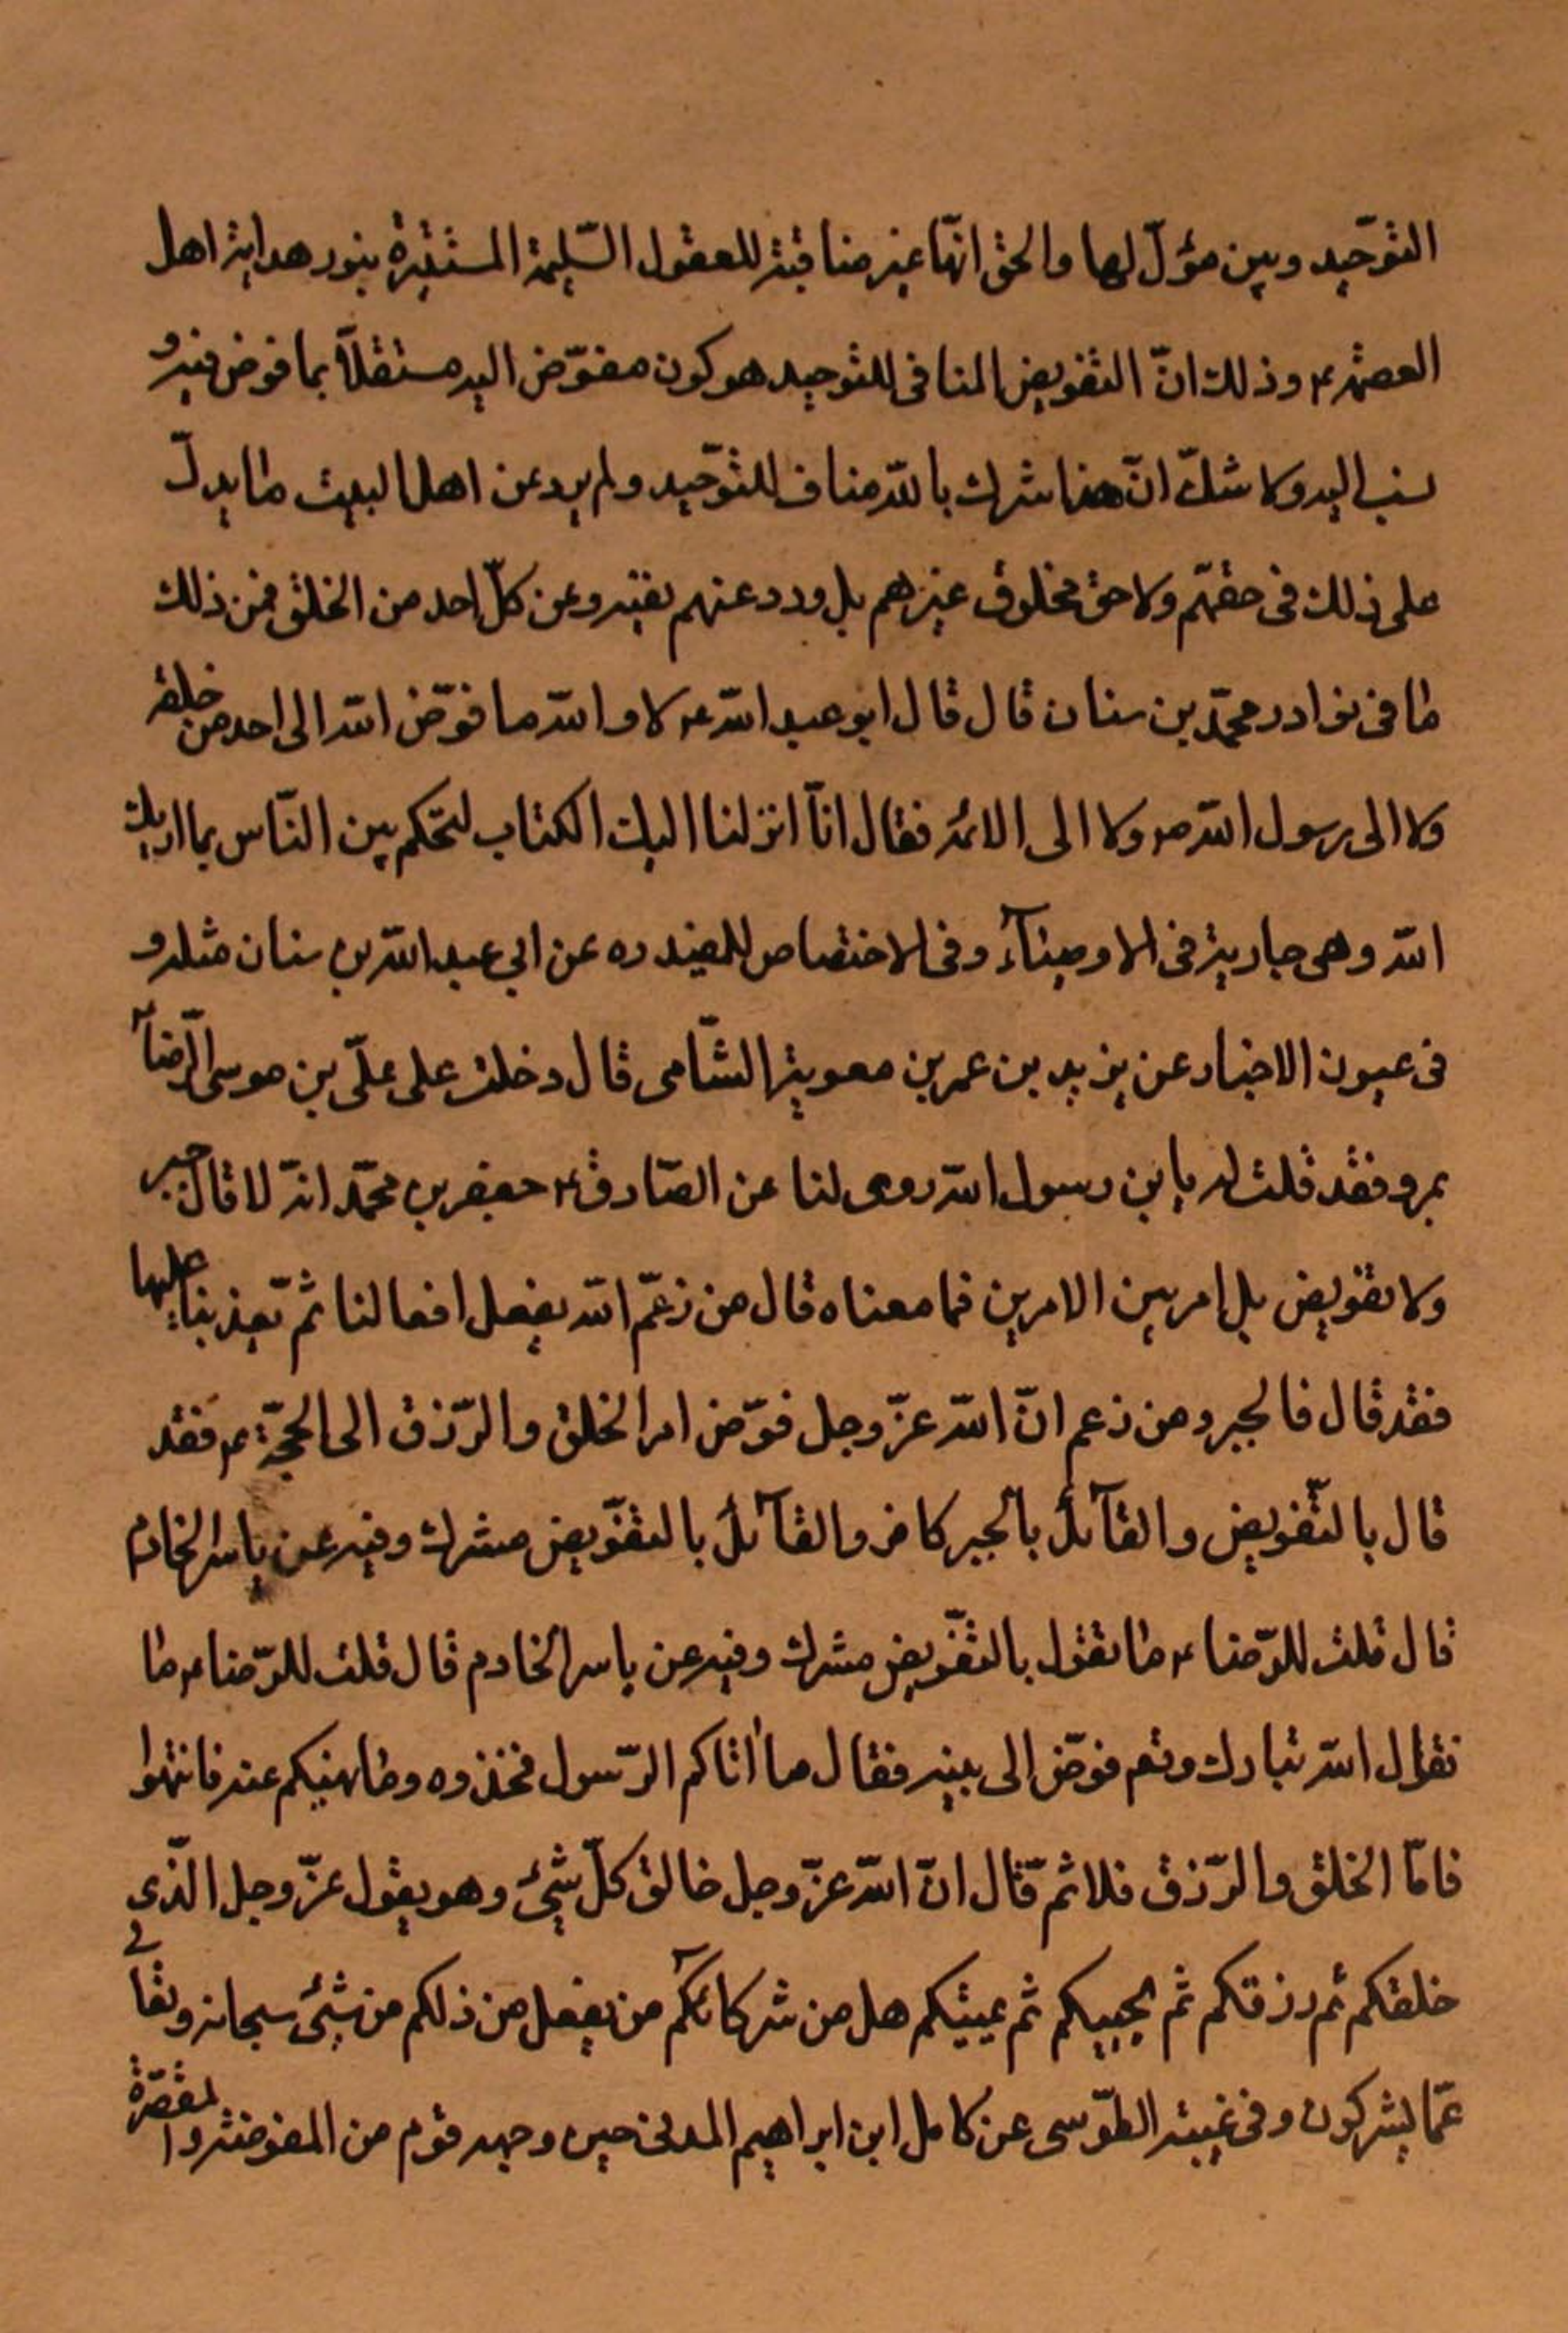 التوّحيد وبين مؤلّ لها والحق انهّا غير منافية للعقول السّليمة المستنيرة بنور هداية اهل
العصمة ع وذلك انّ التفويض المنافى للتوحيد هو كون مفوّض اليه مستقلاّ بما فوض فيه و
نسب اليه ولا شكّ انّ هذا شرك بالله مناف للتوّحيد ولم يرد عن اهل البيت ما يدلّ
على ذلك فى حقهّم ولا حق مخلوق غيرهم بل ورد عنهم نفيه وعن كلّ احد من الخلق فمن ذلك
ما فى نوادر محمّد بن سنان قال قال ابو عبد الله ع لا والله ما فوّض الله الى احد من خلقه
ولا الى رسول الله ص ولا الى الائمة فقال انّا انزلنا اليك الكتاب لتحكم بين النّاس بما اريك
الله وهى جارية فى الاوصيآء وفى الاختصاص للمفيد ره عن ابي عبد الله بن سنان مثله و
فى عيون الاخبار عن يزيد بن عمر بن معوية الشّامى قال دخلت على علّى بن موسى الرّضا ع
بمرو فقد قلت له يابن رسول الله روى لنا عن الصّادق ع جعفر بن محمّد انّه لا قال جبر
ولا تفويض بل امر بين الامرين فما معناه قال من زعمّ الله يفعل افعالنا ثم تّعذبنا عليها
فقد قال فالجبر ومن زعم انّ الله عزّ وجل فوّض امر الخلق والرّزق الى الحجّة ع فقد
قال بالتّفويض والقآئل بالجبر كافر والقآئل بالتفوّيض مشرك وفيه عن ياسر الخادم
قال قلت للرّضا ع ما تقول بالتفّويض مشرك وفيه عن ياسر الخادم قال قلت للرّضا ع ما
تقول الله تبارك وتع فوّض الى نبيه فقال ما اتاكم الرّسول فخذوه وما نهيكم عنه فانتهوا
فامّا الخلق والرّزق فلا ثمّ قال انّ الله عزّ وجل خالق كلّ شيئ وهو يقول عزّ وجل الذّى
خلقكم ثم رزقكم ثم يحييكم ثم يميتكم هل من شركائكم من يفعل من ذلكم من شيئ سبحانه وتعالى
عمّا يشركون وفى غيبة الطّوسى عن كامل ابن ابراهيم المدنى حين وجهه قوم من المفوضة والمقصّرة